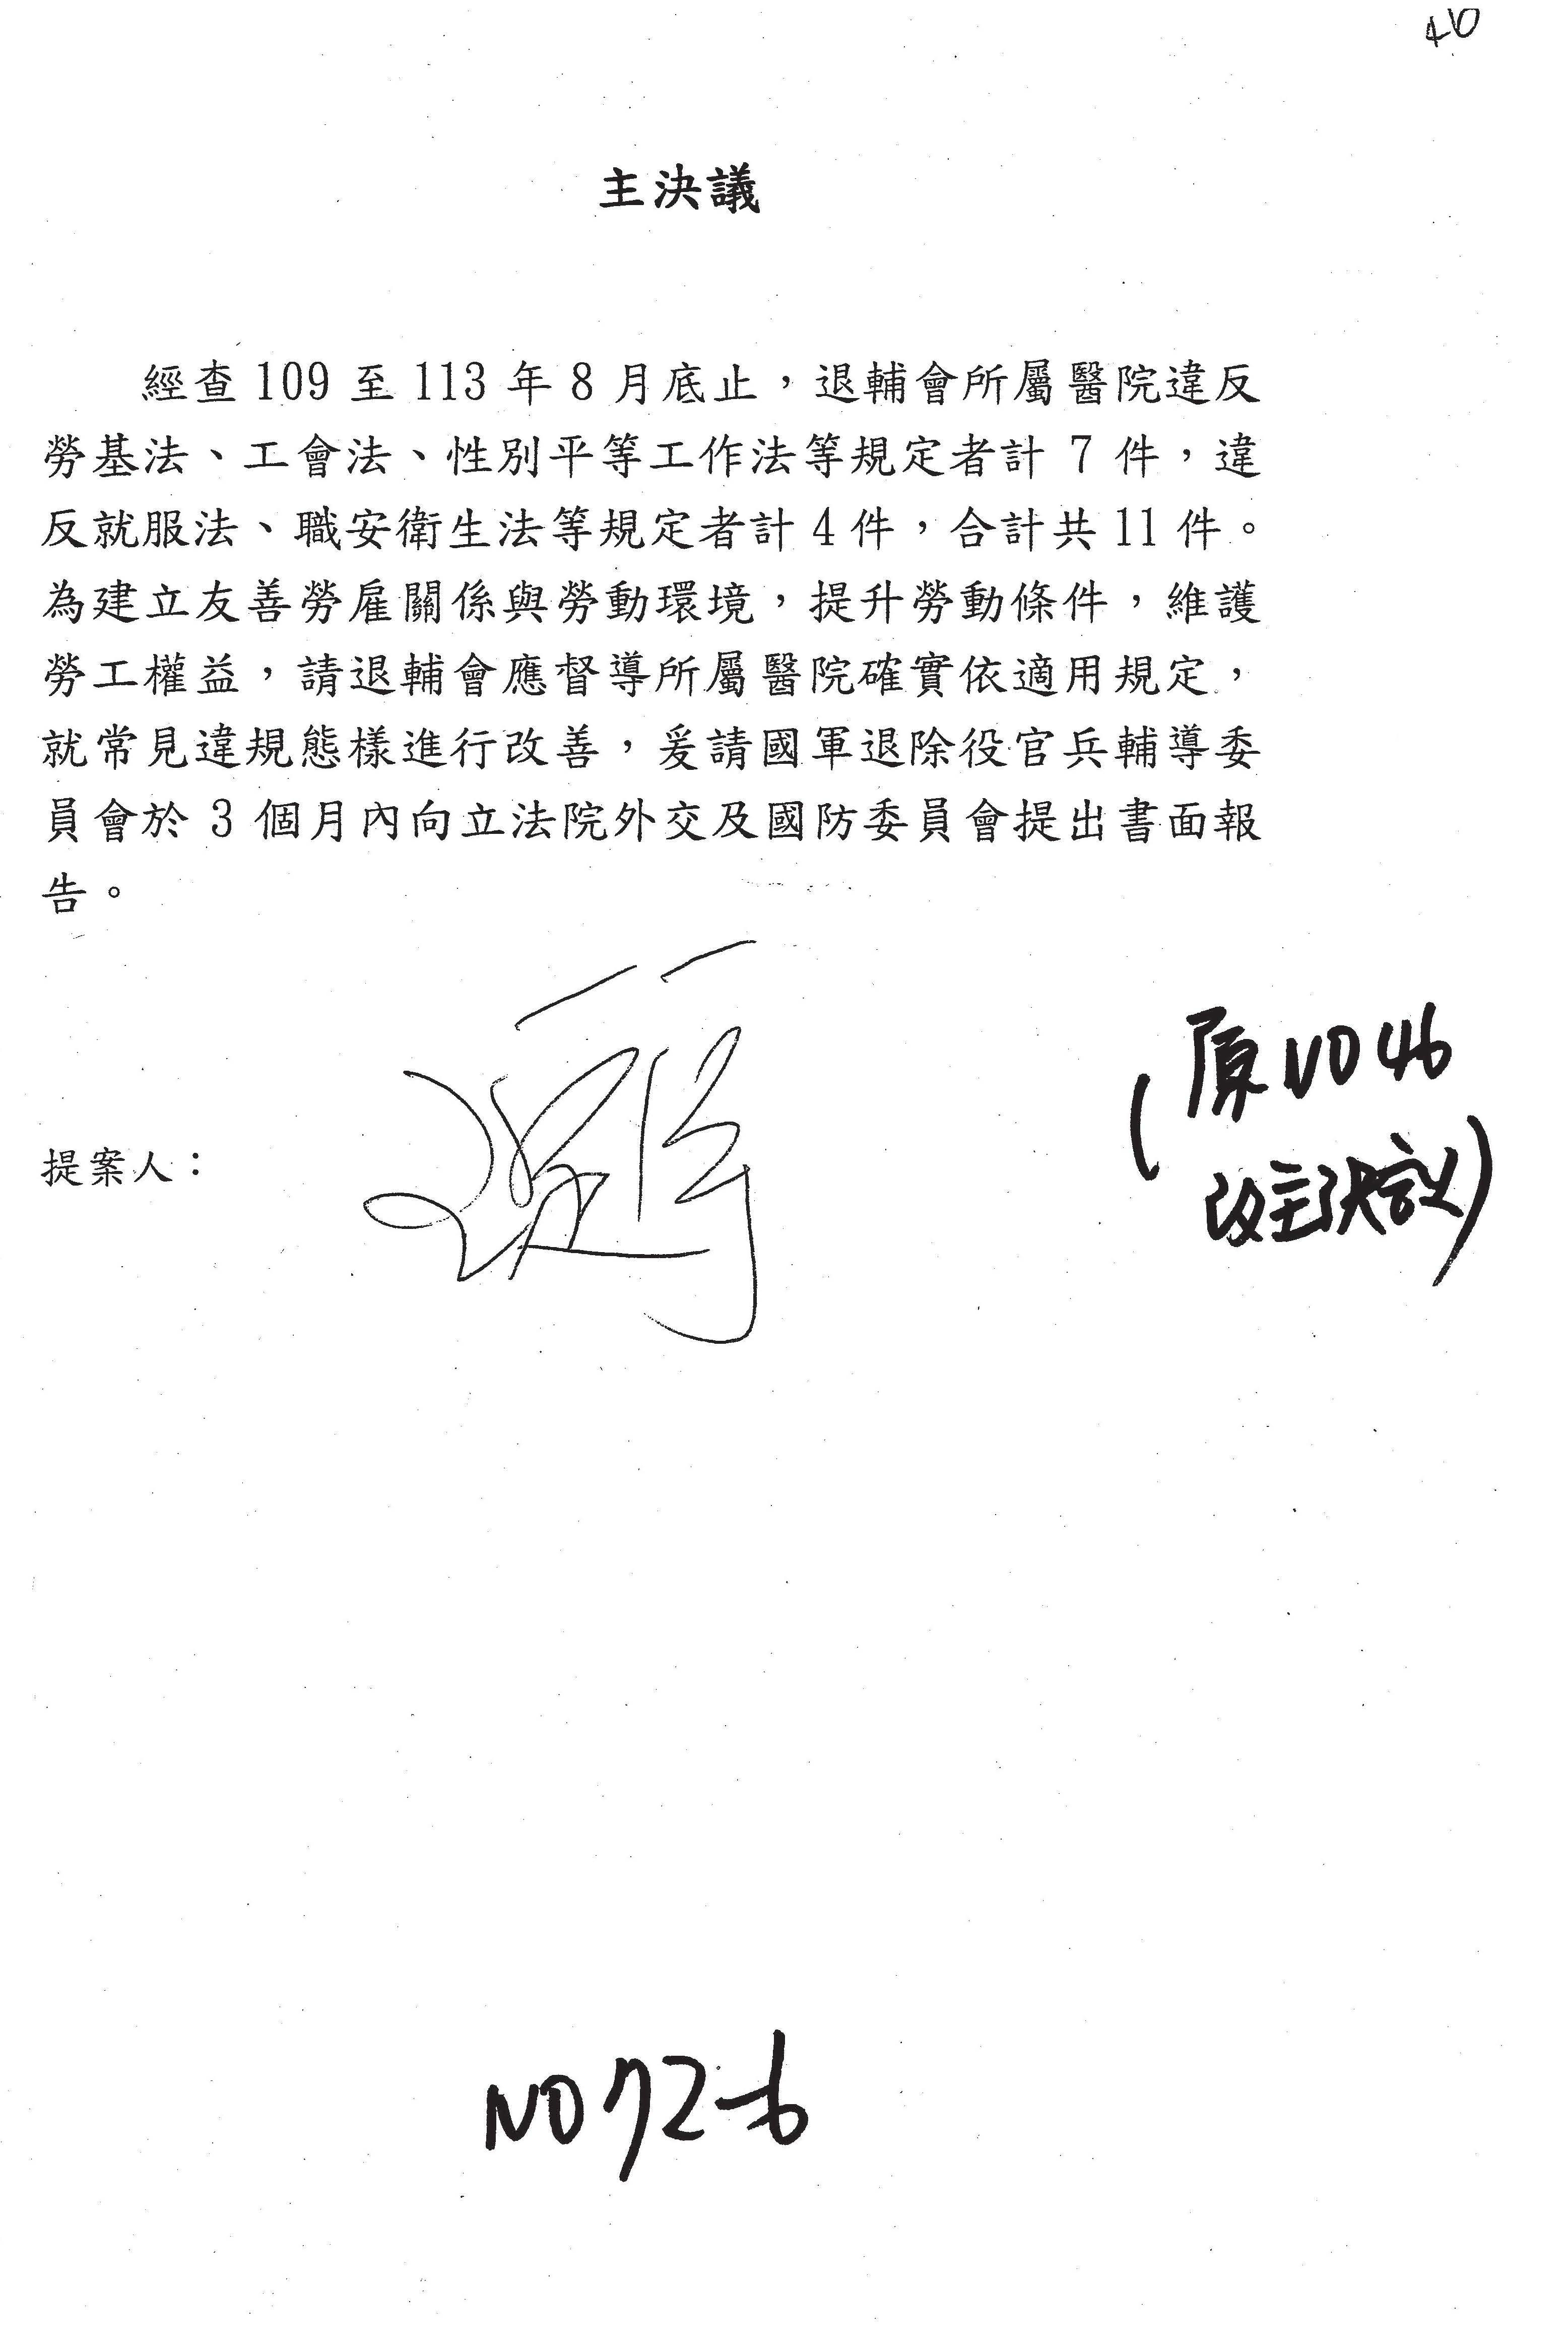 40
主決議
經查109至113年8月底止，退輔會所屬醫院違反
勞基法、工會法、性別平等工作法等規定者計 7 件，違
反就服法、職安衛生法等規定者計4件，合計共11件。
為建立友善勞雇關係與勞動環境，提升勞動條件，維護
勞工權益，請退輔會應督導所屬醫院確實依適用規定，
就常見違規態樣進行改善，爰請國軍退除役官兵輔導委
員會於 3 個月內向立法院外交及國防委員會提出書面報
告。
提案人：
(原NO46
改主決議)
NO72-6